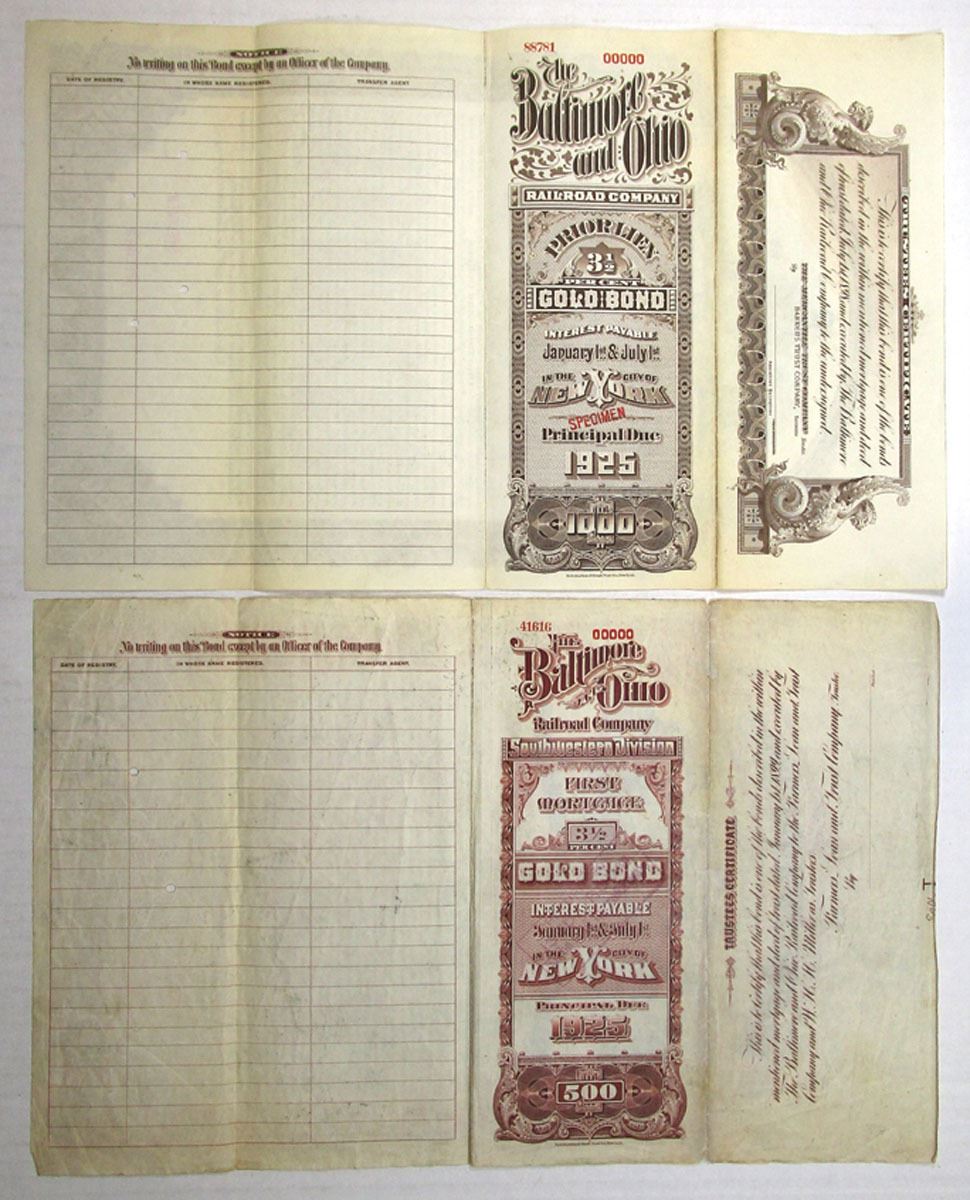 NOTICE
No writing on this Bond except by an Officer of the Company.
DATE OF REGISTRY.
IN WHOSE NAME REGISTERED.
TRANSFER AGENT
88781
00000
The
Baltimore
and Ohio
RAILROAD COMPANY
PRIOR LIEN
3½
PER CENT
GOLD BOND
INTEREST PAYABLE
January 1st & July 1st
IN THE CITY OF
NEW YORK
SPECIMEN
Principal Due
1925
1000
TRUSTEES CERTIFICATE
This is to certify that this bond is one of the bonds
described in the within mentioned mortgage and deed
of trust dated July 1st 1898 and executed by The Baltimore
and Ohio Railroad Company to the undersigned.
BANKERS TRUST COMPANY,
By
NOTICE
No writing on this Bond except by an Officer of the Company.
DATE OF REGISTRY.
IN WHOSE NAME REGISTERED.
TRANSFER AGENT.
41616
00000
THE
Baltimore
& Ohio
Railroad Company
Southwestern Division
FIRST
MORTGAGE
3½
PER CENT
GOLD BOND
INTEREST PAYABLE
January 1st & July 1st
IN THE CITY OF
NEW YORK
PRINCIPAL DUE
1925
500
TRUSTEES CERTIFICATE
This is to certify that this bond is one of the bonds described in the within
mentioned mortgage and deed of trust dated January 1st 1899 and executed by
The Baltimore and Ohio Railroad Company to the Farmers, Loan and Trust
Company and W. H. H. Wilkens, Trustees
Farmers, Loan and Trust Company Trustee
By